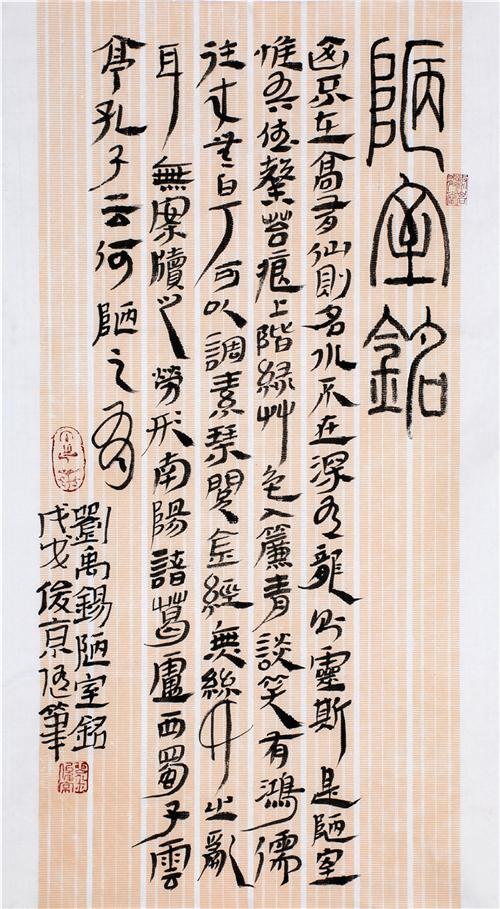 陋室銘
山不在高有仙則名水不在深有龍則靈斯是陋室
惟吾德馨苔痕上階緑艸色入簾青談笑有鴻儒
往来無白丁可以調素琴閱金經無絲竹之亂
耳無案牘之勞形南陽諸葛廬西蜀子雲
亭孔子云何陋之有
劉禹錫陋室銘
戊戌俊京随筆